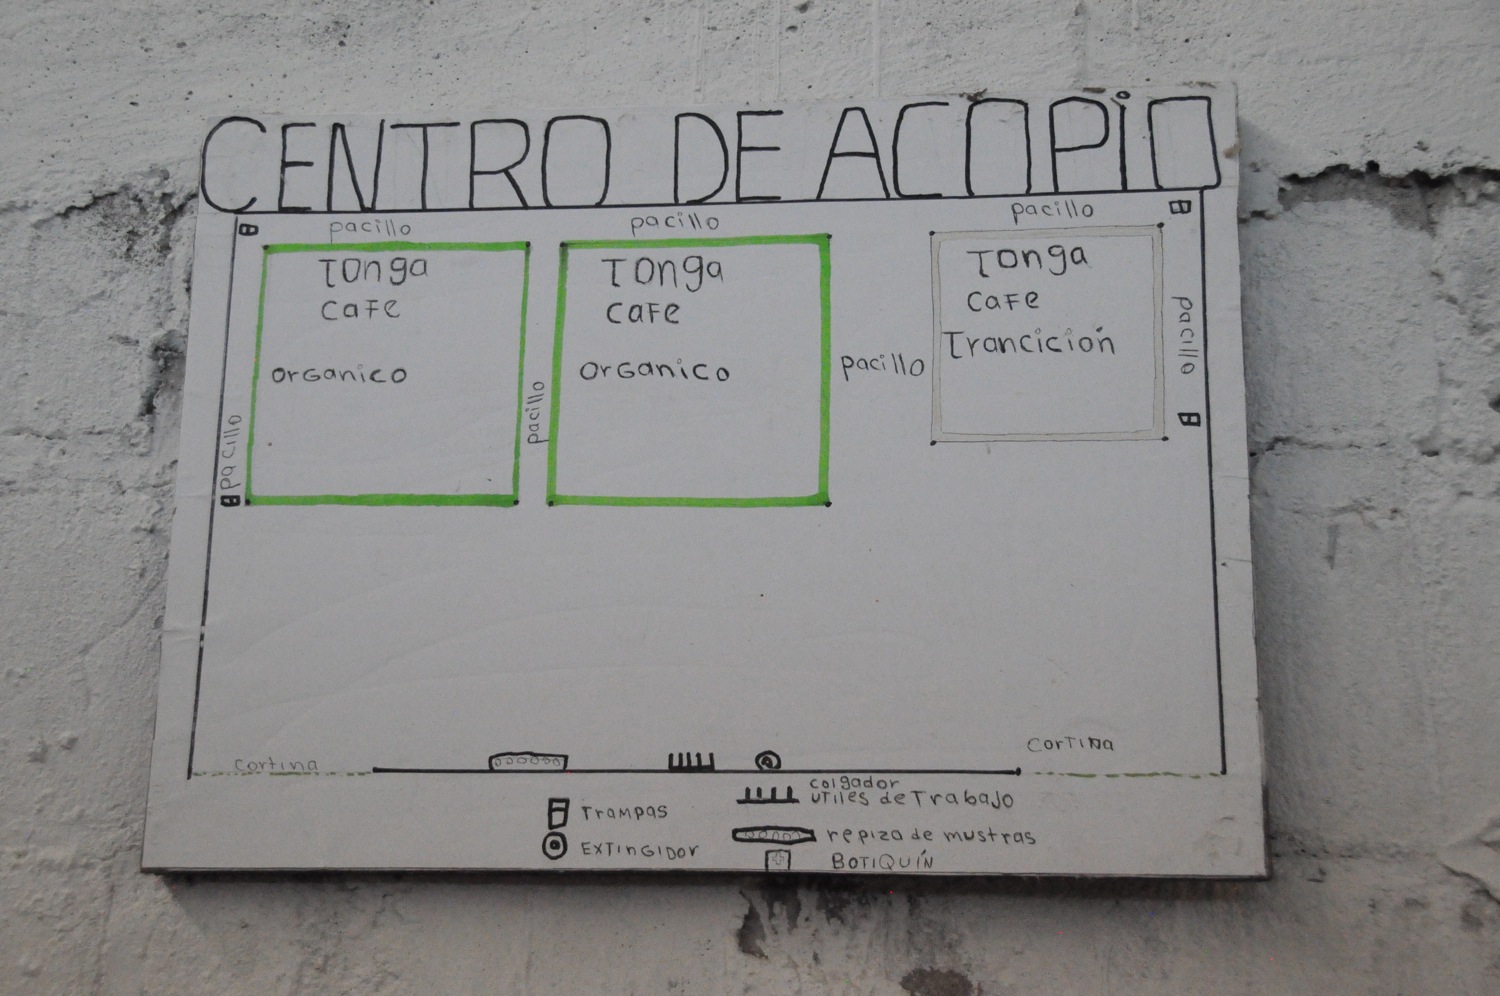 CENTRO DE ACOPiO
pacillo
pacillo
pacillo
Tonga
cafe
organico
Tonga
cafe
organico
Tonga
cafe
Trancición
pacillo
pacillo
pacillo
pacillo
cortina
cortina
Trampas
Extingidor
colgador
utiles de Trabajo
repiza de mustras
Botiquín